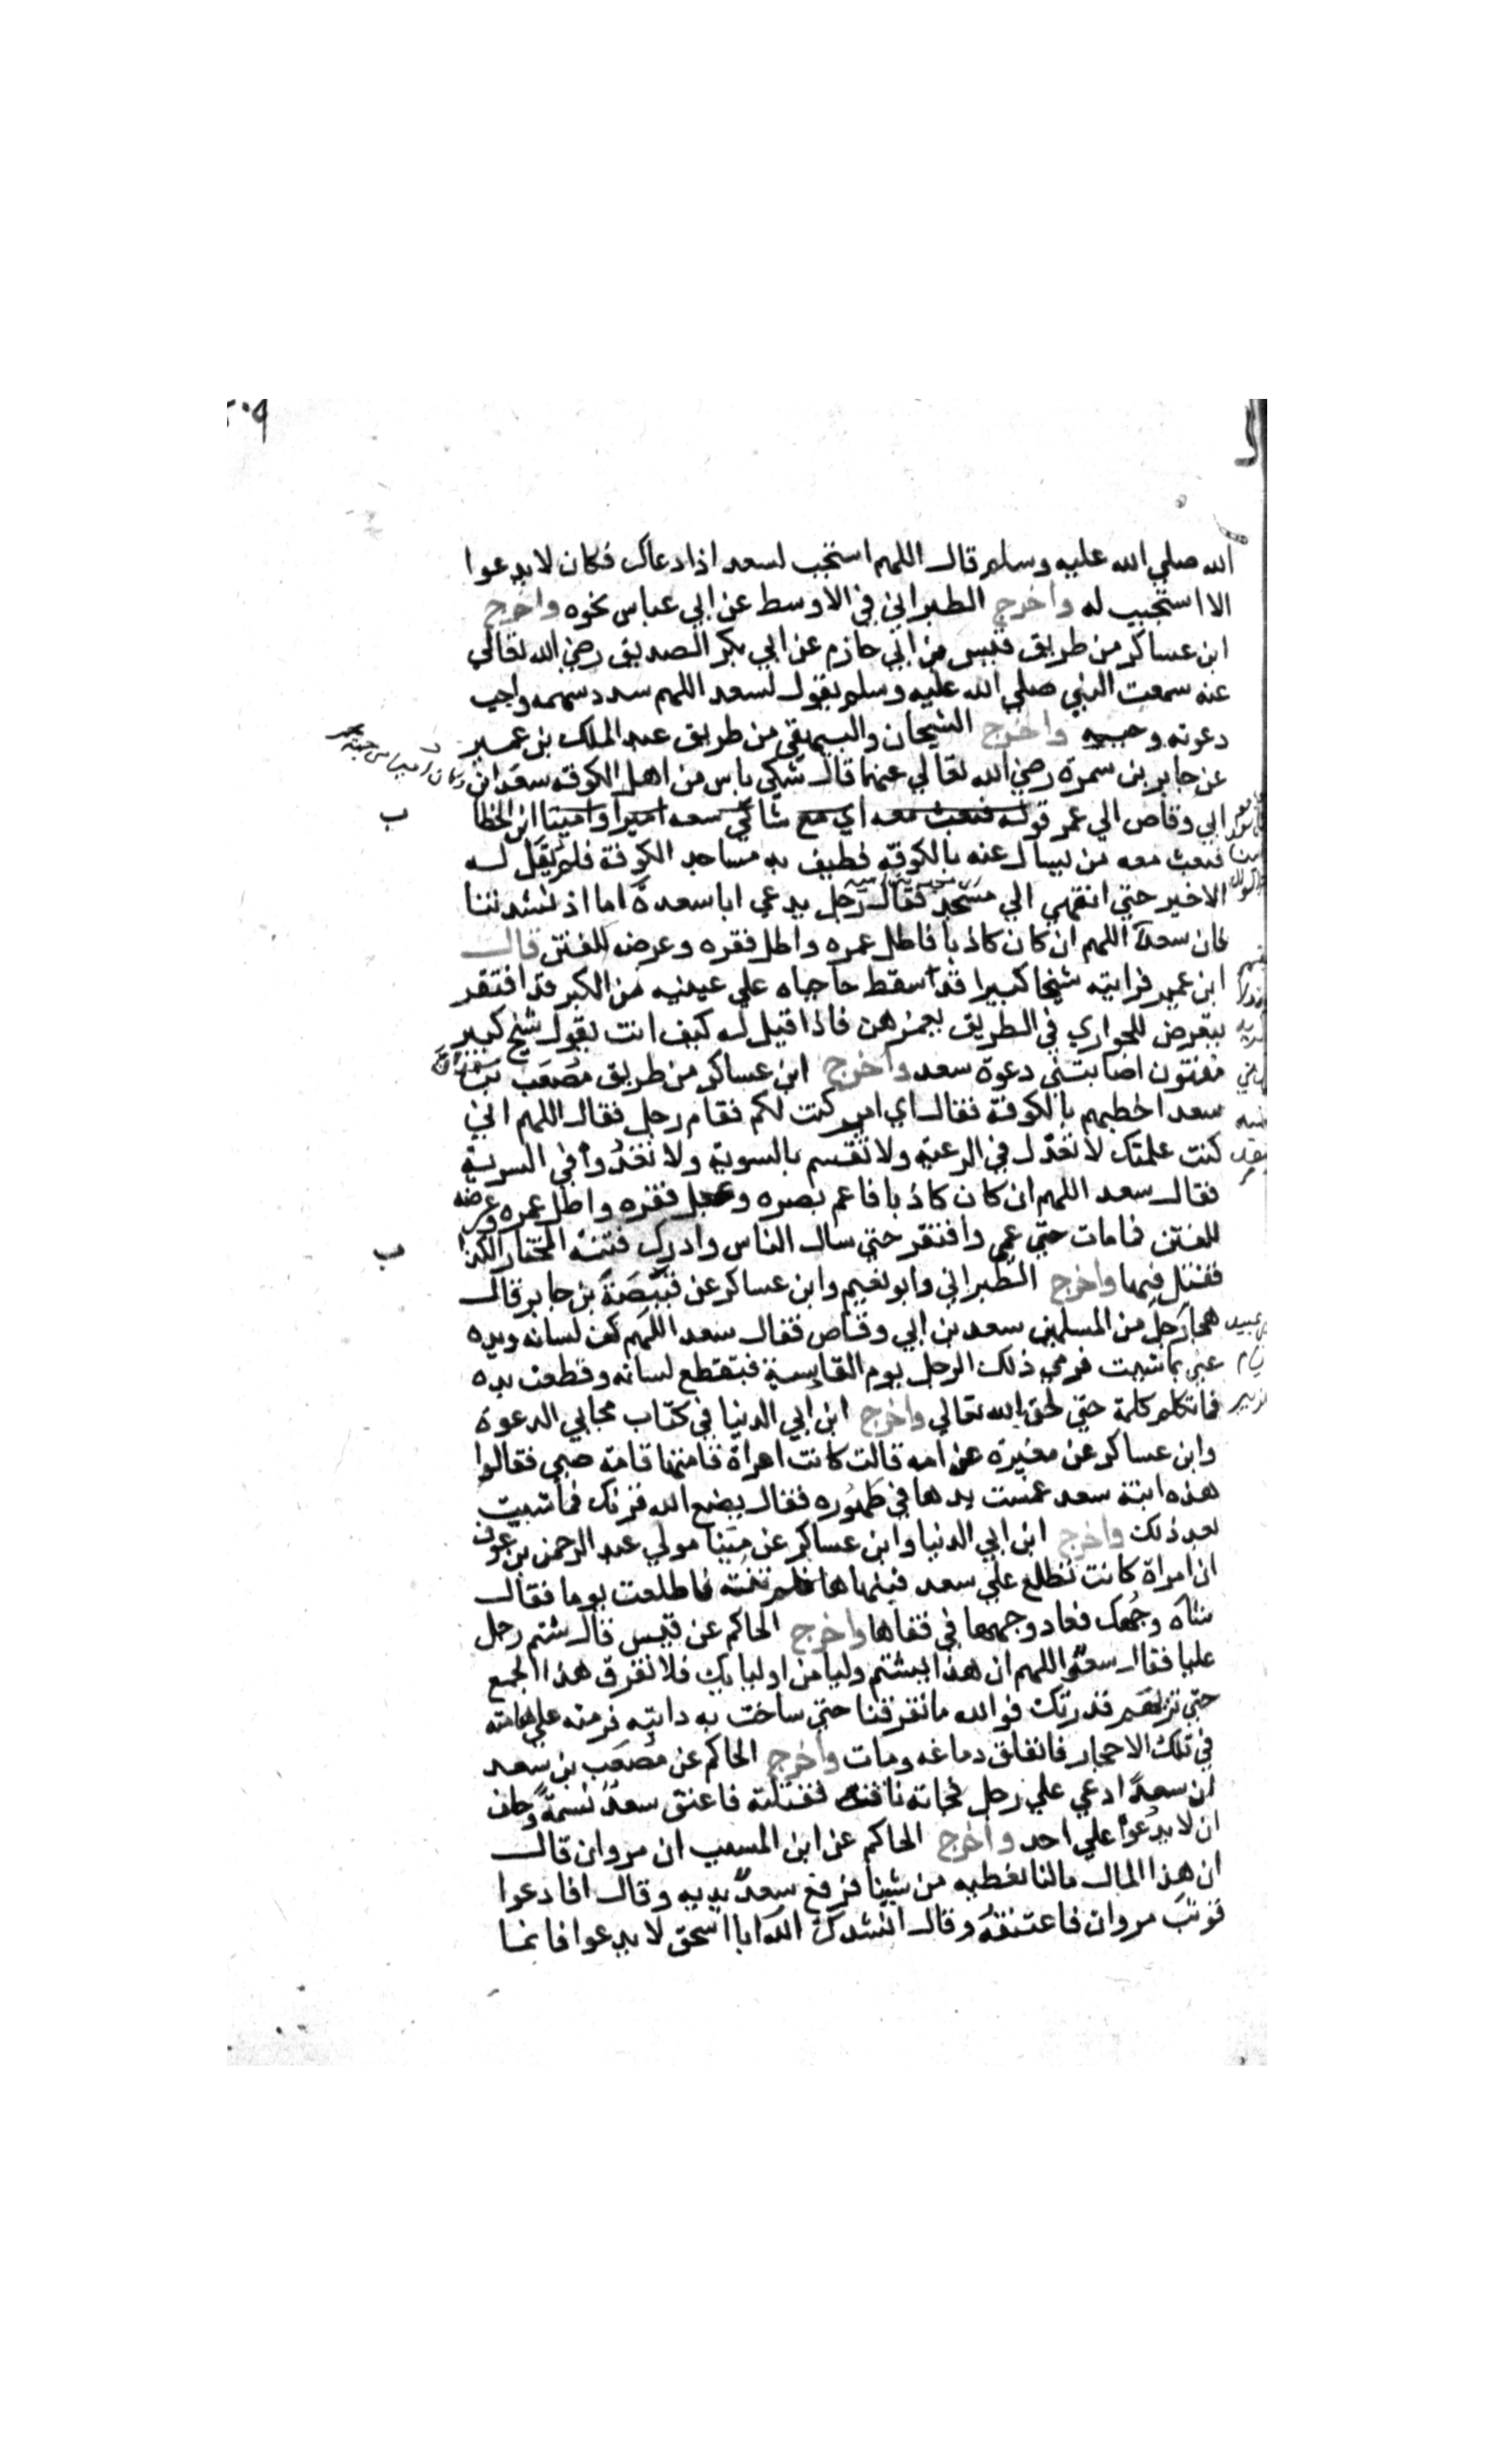 ٢٠٩
الله صلي الله عليه وسلم قال اللهم استجب لسعد اذا دعاك فكان لا يدعوا
الا استجيب له واخرج الطبراني في الاوسط عن ابي عباس نحوه واخرج
ابن عساكر من طريق قيس بن ابي حازم عن ابي بكر الصديق رضي الله تعالي
عنه سمعت النبي صلي الله عليه وسلم يقول لسعد اللهم سدد سهمه واجب
دعوته وحببه واخرج الشيخان والبيهقي من طريق عبد الملك بن عمير
عن جابر بن سمرة رضي الله تعالي عنهما قال شكي ناس من اهل الكوفة سعد ابن
ابي وقاص الي عمر قوله فبعث معه اي مع شاكي سعد اميرا وامينا ابن الخطا
ب
فبعث معه من يسال عنه بالكوفة فطيف به مساجد الكوفة فلم يقل له
الا خير حتي انتهي الي مسجد فقال رجل يدعي ابا سعدة اما اذ نشدتنا
فان سعدا اللهم ان كان كاذبا فاطل عمره واطل فقره وعرضه للفتن قال
ابن عمير فرايته شيخا كبيرا قد سقط حاجباه علي عينيه من الكبر قد افتقر
يتعرض للجواري في الطريق يغمزهن فاذا قيل له كيف انت يقول شيخ كبير
مفتون اصابتني دعوة سعد واخرج ابن عساكر من طريق مصعب بن
سعد اخطبهم بالكوفة فقال اي امير كنت لكم فقام رجل فقال اللهم اني
كنت علمتك لا تعدل في الرعية ولا تقسم بالسوية ولا تغدوا في السرية
فقال سعد اللهم ان كان كاذبا فاعم بصره وعجل فقره واطل عمره وعرضه
للفتن فما مات حتي عمي وافتقر حتي سال الناس وادرك فتنة المختار الكذا
ب
فقتل فيها واخرج الطبراني وابو نعيم وابن عساكر عن قبيصة بن جابر قال
هجا رجل من المسلمين سعد بن ابي وقاص فقال سعد اللهم كف لسانه ويده
عني بما شيت فرمي ذلك الرجل يوم القادسية فتقطع لسانه وقطعت يده
فما تكلم كلمة حتي لحق بالله تعالي واخرج ابن ابي الدنيا في كتاب مجابي الدعوة
وابن عساكر عن مغيرة عن امه قالت كانت امراة قامتها قامة صبي فقالوا
هذه ابنة سعد غمست يدها في طهوره فقال يضع الله قرنك فما شبت
بعد ذلك واخرج ابن ابي الدنيا وابن عساكر عن مينا مولي عبد الرحمن بن عوف
ان امراة كانت تطلع علي سعد فينهاها فلم تنته فاطلعت يوما فقال
شاه وجهك فعاد وجهها في قفاها واخرج الحاكم عن قيس قال شتم رجل
عليا فقال سعد اللهم ان هذا يشتم وليا من اوليايك فلا تفرق هذا الجمع
حتي تريهم قدرتك فوالله ما تفرقنا حتي ساخت به دابته فرمته علي هامته
في تلك الاحجار فانفلق دماغه ومات واخرج الحاكم عن مصعب بن سعد
ان سعدا دعي علي رجل فجاته ناقة فقتلته فاعتق سعد نسمة وحلف
ان لا يدعوا علي احد واخرج الحاكم عن ابن المسيب ان مروان قال
ان هذا المال مالنا نعطيه من شينا فرفع سعد يديه وقال افادعوا
فوثب مروان فاعتنقه وقال انشدك الله ابا اسحق لا يدعوا فانما